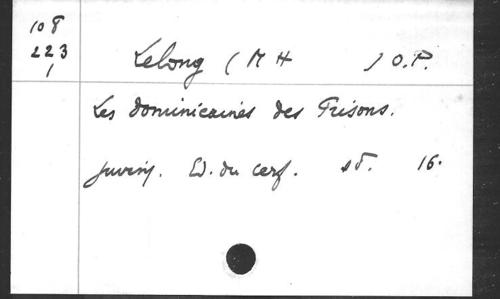 108
223
1
Lelong (M H ) O.P.
Les dominicaines des Prisons.
Juvisy. Ed. du cerf. sd. 16.